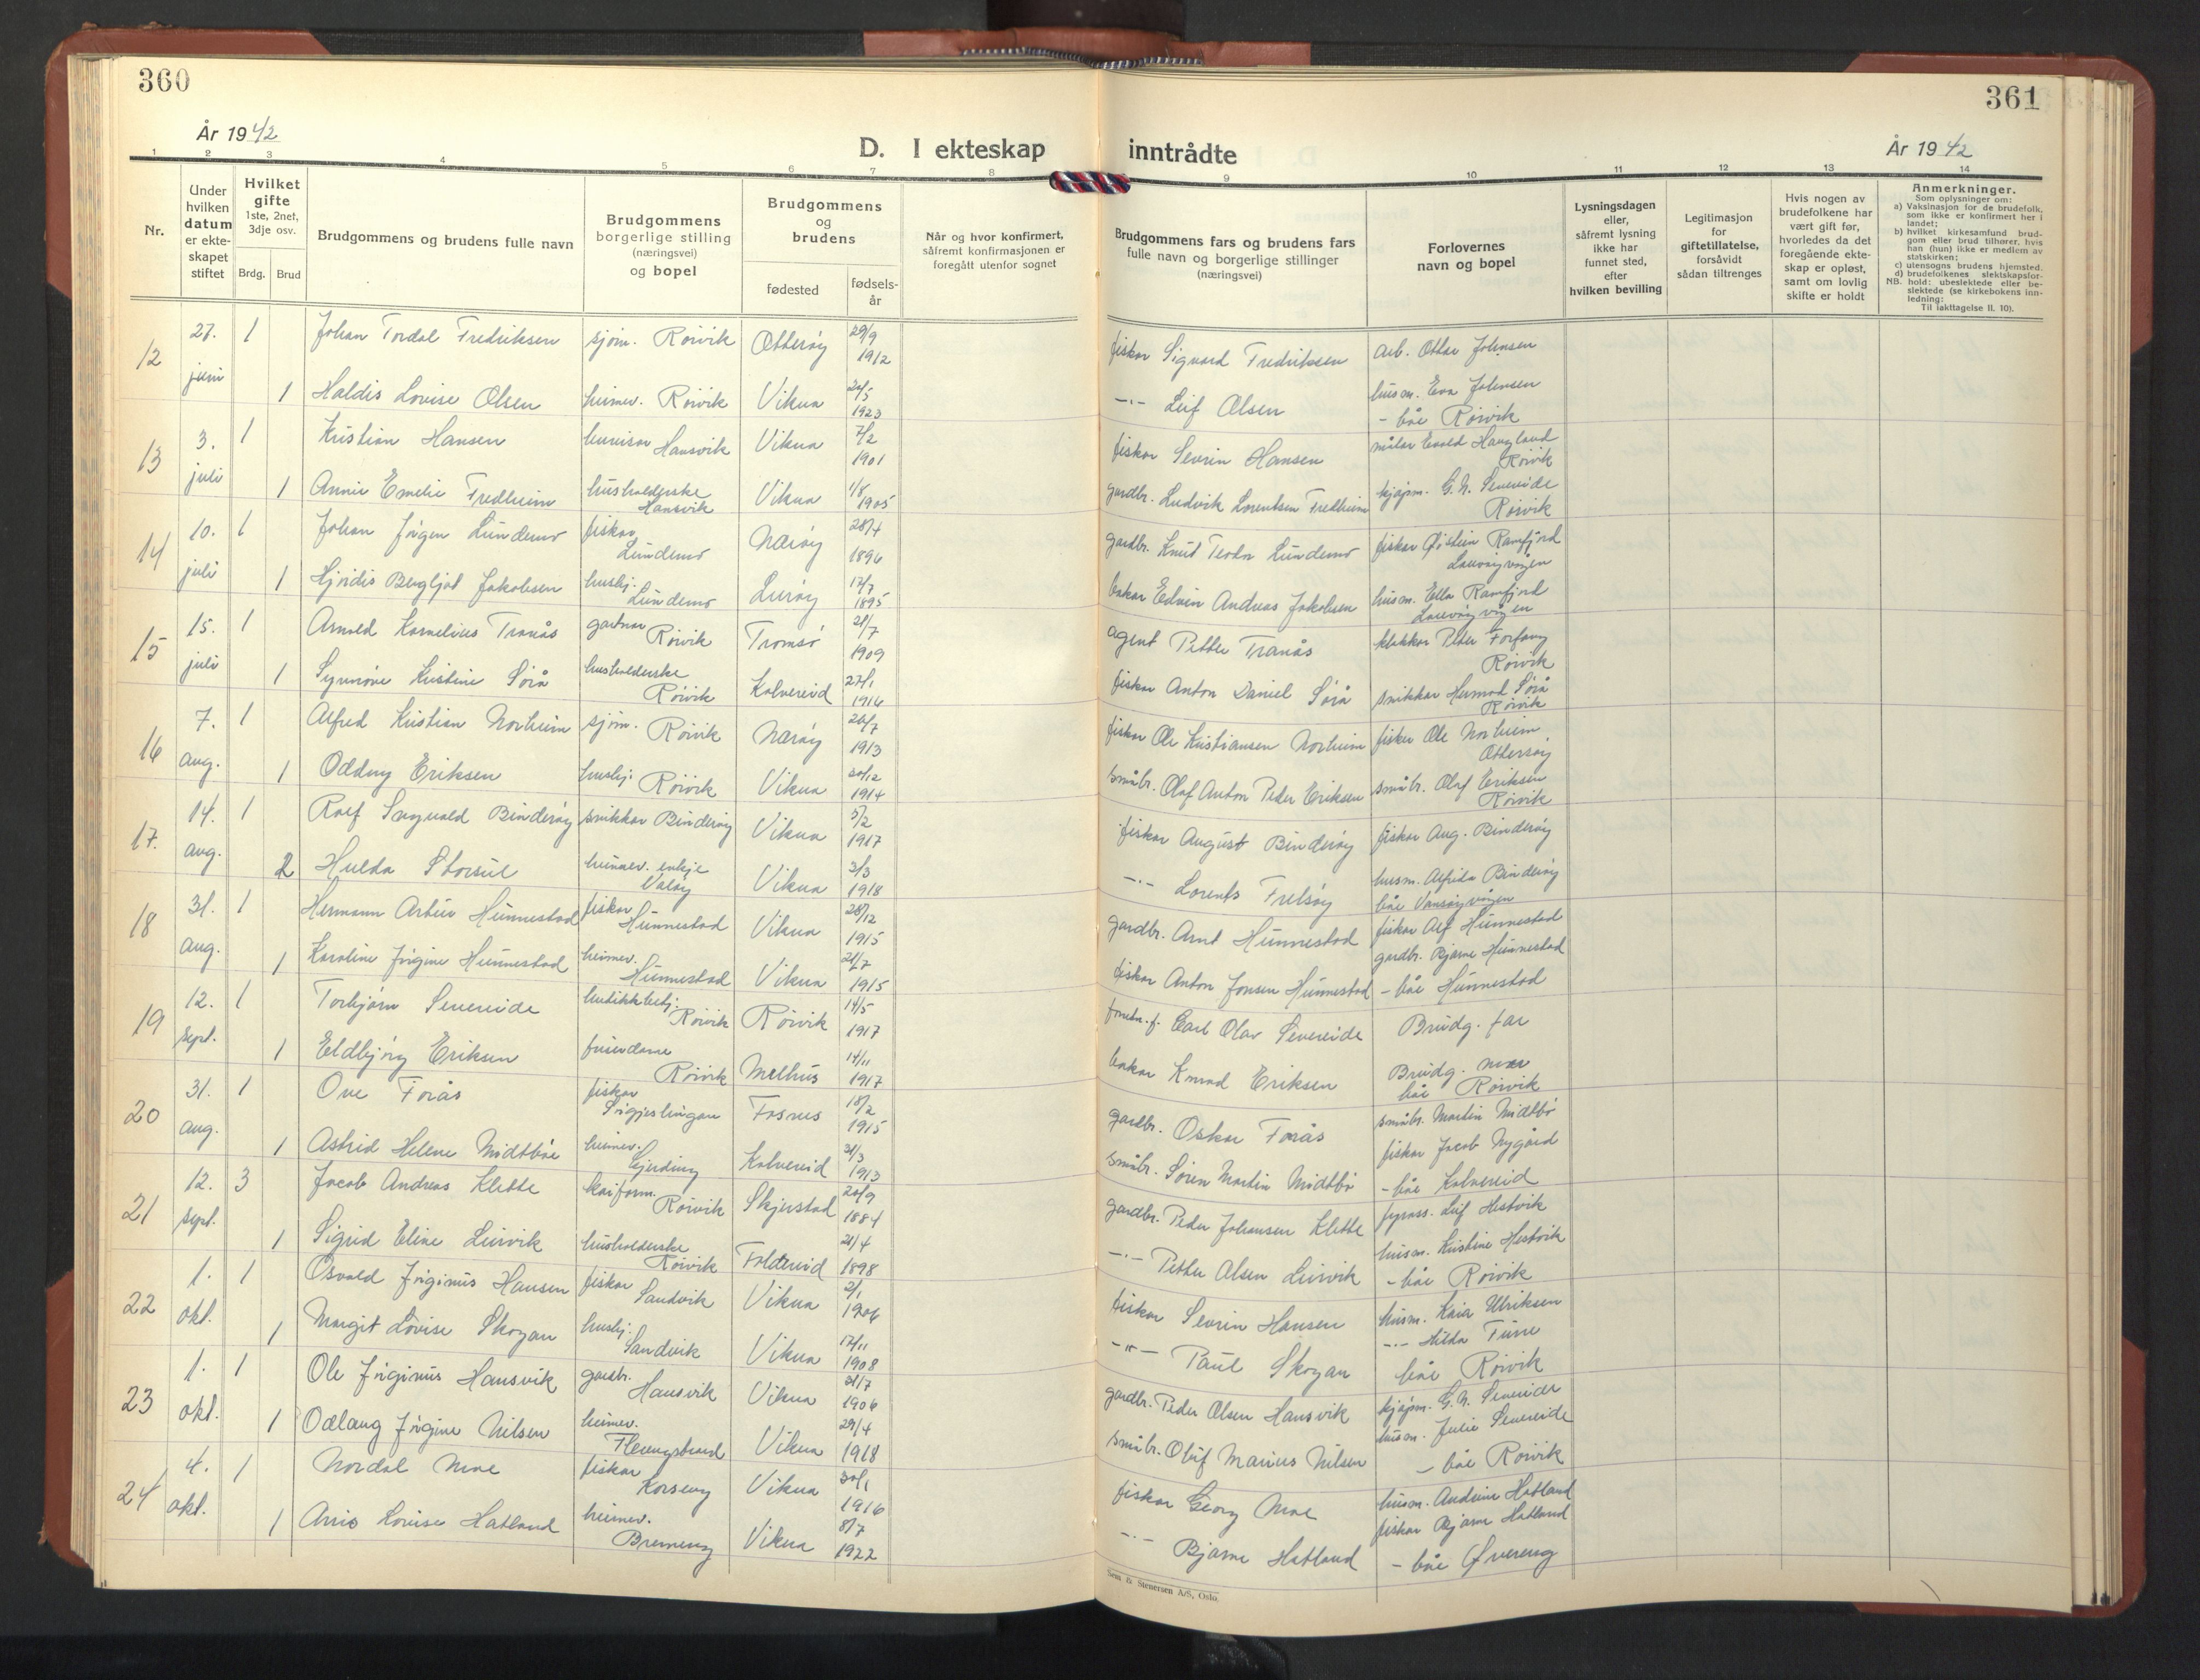 360
361
År 1942
D. I ekteskap
inntrådte
År 1942
1 2 3 4 5 6 7 8 9 10 11 12 13 14
Nr.
Under hvilken datum er ekteskapet stiftet
Hvilket gifte
1ste, 2net, 3dje osv.
Brdg.
Brud
Brudgommens og brudens fulle navn
Brudgommens borgerlige stilling (næringsvei) og bopel
Brudgommens og brudens
fødested
fødselsår
Når og hvor konfirmert, såfremt konfirmasjonen er foregått utenfor sognet
Brudgommens fars og brudens fars fulle navn og borgerlige stillinger (næringsvei)
Forlovernes navn og bopel
Lysningsdagen eller, såfremt lysning ikke har funnet sted, efter hvilken bevilling
Legitimasjon for giftetillatelse, forsåvidt sådan tiltrenges
Hvis nogen av brudefolkene har vært gift før, hvorledes da det foregående ekteskap er opløst, samt om lovlig skifte er holdt
Anmerkninger.
Som oplysninger om:
a) Vaksinasjon for de brudefolk, som ikke er konfirmert her i landet;
b) hvilket kirkesamfund brudgom eller brud tilhører, hvis han (hun) ikke er medlem av statskirken;
c) utensogns brudens hjemsted.
d) brudefolkenes slektskapsforhold: ubeslektede eller beslektede (se kirkebokens innledning:
NB. Til iakttagelse II. 10).
12 27. juni 1 Johan Tordal Fredriksen sjøm. Rørvik Otterøy 29/9 1912 fiskar Sigvard Fredriksen arb. Ottar Johnsen
1 Haldis Lovise Olsen heimev. Rørvik Vikna 1923 -"- Leif Olsen husm. Eva Johnsen
- båe Rørvik
13 3. juli 1 Kristian Hansen bureisar Hansvik Vikna 7/2 1901 fiskar Sevrin Hansen målar Evald Haugland Rørvik
1 Annie Emelie Fredheim husholderske Hansvik Vikna 1/8 1905 gardbr. Ludvik Lorentsen Fredheim kjøpm. G. N. Severeide Rørvik
14 10. juli 1 Johan Jørgen Lundemo fiskar Lundemo Nærøy 28/4 1896 gardbr. Knut Teodor Lundemo fiskar Øistein Ramfjord
1 Hjørdis Bergljot Jakobsen hushj. Lundemo Lurøy 17/7 1895 bakar Edvin Andreas Jakobsen husm. Ella Ramfjord
15 15. juli 1 Arnold Kornelius Tranås gartnar Rørvik Tromsø 21/7 1909 agent Petter Tranås klokkar Peter Forfang Rørvik
1 Synnøve Kristine Sørå husholderske Rørvik Kolvereid 27/1 1916 fiskar Anton Daniel Sørå snikkar Hermod Sørå Rørvik
16 7. aug. 1 Alfred Kristian Norheim sjøm. Rørvik Nærøy 26/7 1913 fiskar Ole Kristiansen Norheim fisker Ole Norheim, Otterøy
1 Oddny Eriksen hushj. Rørvik Vikna 20/12 1914 småbr. Olaf Anton Peder Eriksen småbr. Olaf Eriksen Rørvik
17. 14. aug. 1 Rolf Sagvald Binderøy snikkar Binderøy Vikna 5/2 1917 fiskar August Binderøy fiskar Aug. Binderøy
2 Hulda Storsul heimev. enkje Valøy Vikna 3/3 1918 -"- Lorents Frelsøy husm. Alfrida Binderøy
18 31. aug. 1 Hermann Artur Hunnestad fiskar Hunnestad Vikna 28/12 1915 gardbr. Arnt Hunnestad fiskar Alf Hunnestad
gardbr. Bjarne Hunnestad
1 Karoline Jørgine Hunnestad heimev. Hunnestad Vikna 21/7 1915 fiskar Anton Jonsen Hunnestad - båe Hunnestad
19 12. sept. 1 Torbjørn Severeide butikkbetj. Rørvik Rørvik 14/5 1917 forretn. f. Carl Olav Severeide Brudg. far
1 Eldbjørg Eriksen friserdame Rørvik Melhus 14/11 1917 bakar Konrad Eriksen Brudg. mor
båe Rørvik
20 31. aug. 1 Ove Forås fiskar Fosnes 18/2 1915 gardbr. Oskar Forås småbr. Martin Midtbø
1 Astrid Helene Midtbøe heimev. Gjerding Kolvereid 31/3 1913 småbr. Søren Martin Midtbø fiskar Jacob Nygård
- båe Kolvereid
21 12. sept. 3 Jacob Andreas Klette kaiform. Rørvik Skjerstad 20/9 1884 gardbr. Peder Johansen Klette fyrass. Leif Hestvik
1 Sigrid Eline Leirvik husholderske Rørvik Foldereid 21/4 1898 -"- Petter Olsen Leirvik husm. Kristine Hestvik
- båe Rørvik
22 1. okt. 1 Osvald Jørginus Hansen fiskar Sandvik Vikna 2/1 1906 fiskar Sevrin Hansen husm. Kaia Ulriksen
1 Margit Lovise Skogan hushj. Sandvik Vikna 17/11 1908 -"- Paul Skogan -"- Hilda Furre
båe Rørvik
23 1. okt. 1 Ole Jørginus Hansvik gardbr. Hansvik Vikna 31/7 1906 gardbr. Peder Olsen Hansvik kjøpm. G. N. Severeide
husm. Julie Severeide
1 Odlaug Jørgine Nilsen heimev. Flerengstrand Vikna 29/4 1918 småbr. Oluf Marius Nilsen - båe Rørvik
24 4. okt. 1 Nordal Moe fiskar Korseng Vikna 30/1 1916 fiskar Georg Moe husm. Andrine Hatland
fiskar Bjarne Hatland
1 Anna Lovise Hatland heimev. Bremeng Vikna 8/7 1922 -"- Bjarne Hatland - båe Øvereng
Sem & Stenersen A/S, Oslo.